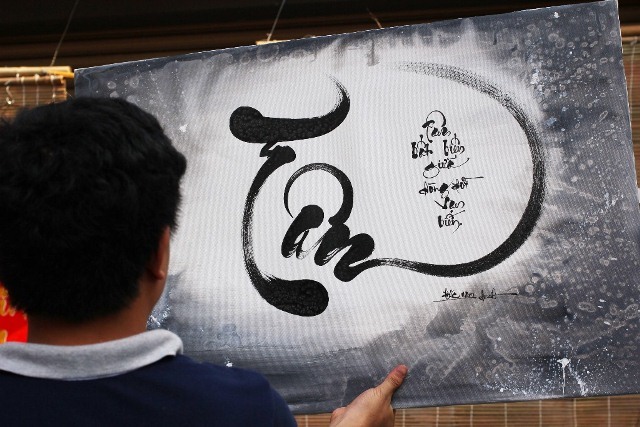 Tâm
Tâm
bất biến
giữa
dòng đời
vạn
biến